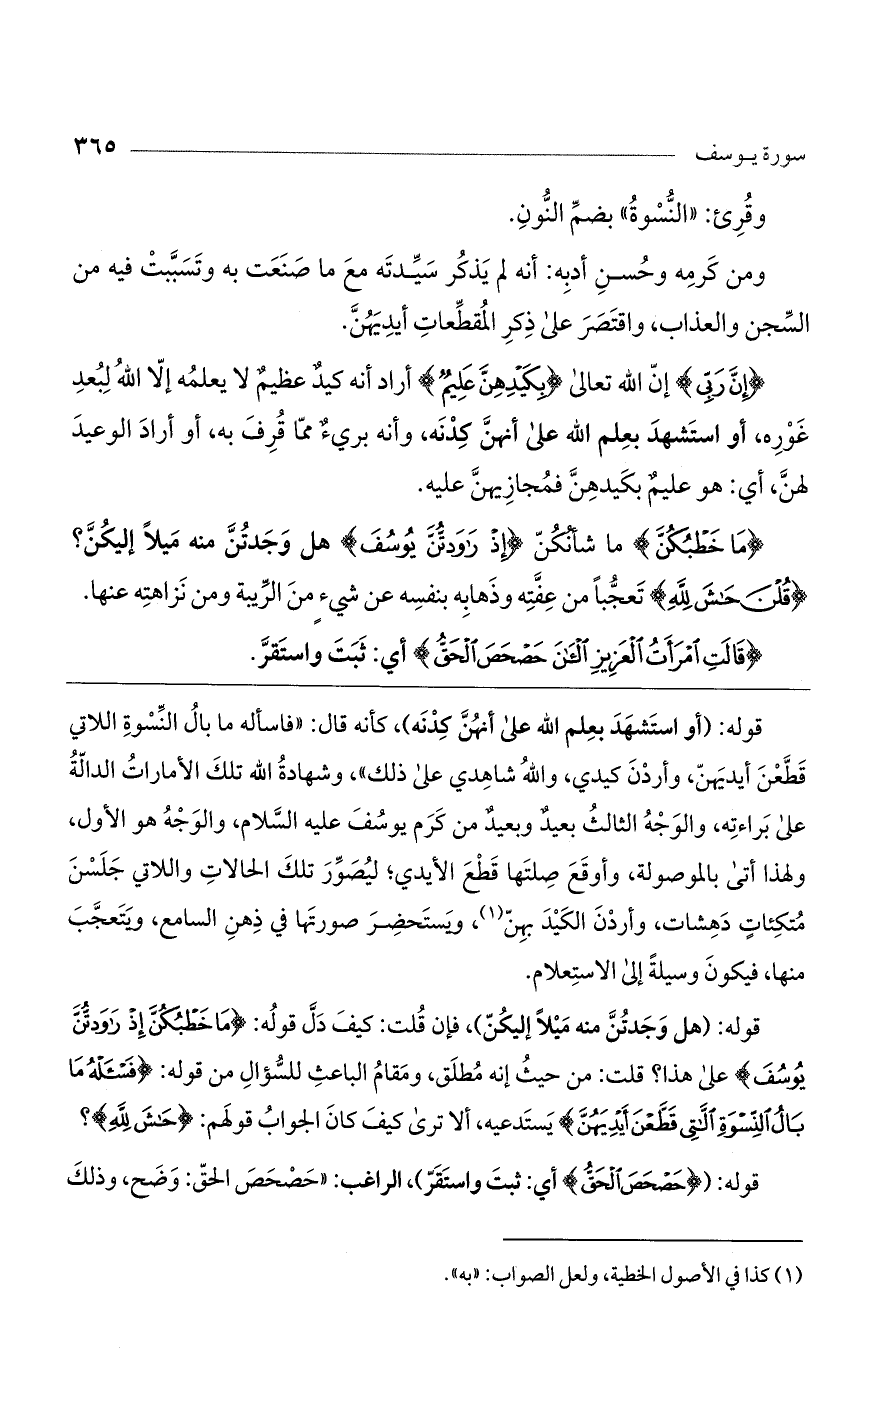 سورة يوسف ٣٦٥
وقُرِئ: «النُّسْوةُ» بضمِّ النُّونِ.
ومن كَرمِه وحُسنِ أدبِه: أنه لم يَذكُر سَيِّدتَه معَ ما صَنَعَت به وتَسَبَّبتْ فيه من
السِّجن والعذاب، واقتَصَرَ علىٰ ذِكرِ المُقطِّعاتِ أيديَهُنَّ.
﴿إِنَّ رَبِّى﴾ إنّ الله تعالىٰ ﴿بِكَيْدِهِنَّ عَلِيمٌ﴾ أراد أنه كيدٌ عظيمٌ لا يعلمُه إلّا اللهُ لِبُعدِ
غَوْرِه، أو استَشهدَ بعِلم الله علىٰ أنهنَّ كِدْنَه، وأنه بريءٌ ممّا قُرِفَ به، أو أرادَ الوعيدَ
لهنَّ، أي: هو عليمٌ بكَيدهِنَّ فمُجازِيهنَّ عليه.
﴿مَا خَطْبُكُنَّ﴾ ما شأنُكُنّ ﴿إِذْ رَٰوَدتُّنَّ يُوسُفَ﴾ هل وَجَدتُنَّ منه مَيلاً إليكُنَّ؟
﴿قُلْنَ حَـٰشَ لِلَّهِ﴾ تَعجُّباً من عِفَّتِه وذَهابِه بنفسِه عن شيءٍ منَ الرِّيبة ومن نَزاهتِه عنها.
﴿قَالَتِ ٱمْرَأَتُ ٱلْعَزِيزِ ٱلْـَٰٔنَ حَصْحَصَ ٱلْحَقُّ﴾ أي: ثَبَتَ واستَقرَّ.
قوله: (أو استَشهَدَ بعِلم الله علىٰ أنهُنَّ كِدْنَه)، كأنه قال: «فاسأله ما بالُ النِّسْوةِ اللاتي
قَطَّعْنَ أيديَهنّ، وأردْنَ كيدي، واللهُ شاهِدي علىٰ ذلك»، وشهادةُ الله تلكَ الأماراتُ الدالّةُ
علىٰ بَراءتِه، والوَجْهُ الثالثُ بعيدٌ وبعيدٌ من كَرَم يوسُفَ عليه السَّلام، والوَجْهُ هو الأول،
ولهذا أتىٰ بالموصولة، وأوقَعَ صِلتَها قَطْعَ الأيدي؛ ليُصَوِّرَ تلكَ الحالاتِ واللاتي جَلَسْنَ
مُتكِئاتٍ دَهِشات، وأردْنَ الكَيْدَ بهِنّ(١)، ويَستَحضِرَ صورتَها في ذِهنِ السامع، ويَتَعجَّبَ
منها، فيكونَ وسيلةً إلىٰ الاستِعلام.
قوله: (هل وَجَدتُنَّ منه مَيْلاً إليكُنّ)، فإن قُلت: كيفَ دَلَّ قولُه: ﴿مَا خَطْبُكُنَّ إِذْ رَٰوَدتُّنَّ
يُوسُفَ﴾ علىٰ هذا؟ قلت: من حيثُ إنه مُطلَق، ومَقامُ الباعثِ للسُّؤالِ من قوله: ﴿فَسْـَٔلْهُ مَا
بَالُ ٱلنِّسْوَةِ ٱلَّـٰتِى قَطَّعْنَ أَيْدِيَهُنَّ﴾ يَستَدعيه، ألا ترىٰ كيفَ كانَ الجوابُ قولَهم: ﴿حَـٰشَ لِلَّهِ﴾؟
قوله: (﴿حَصْحَصَ ٱلْحَقُّ﴾ أي: ثبتَ واستَقَرّ)، الراغب: «حَصْحَصَ الحقّ: وَضَح، وذلكَ
(١) كذا في الأصول الخطية، ولعل الصواب: «به».